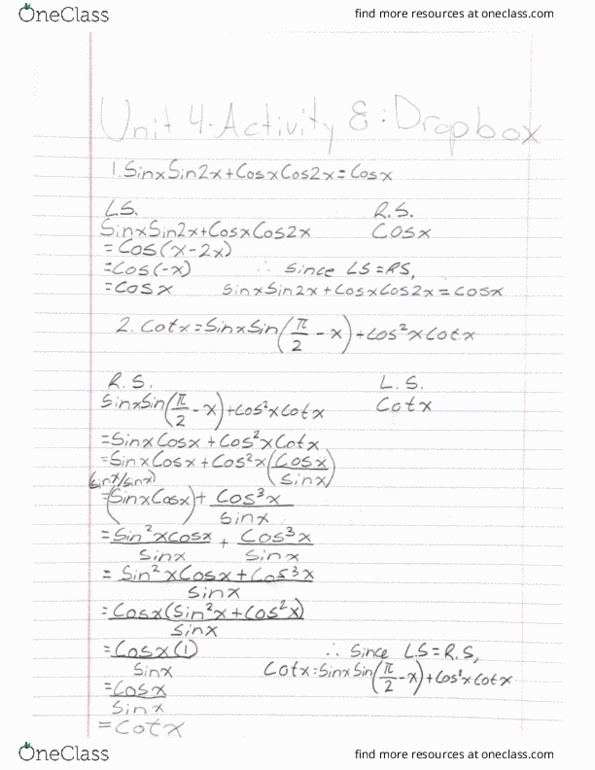 OneClass find more resources at oneclass.com
Unit 4-Activity 8: Dropbox
1. SinxSin2x+CosxCos2x=Cosx
LS. R.S.
SinxSin2x+CosxCos2x Cosx
=Cos(x-2x)
=Cos(-x) ∴ Since LS=RS,
=Cosx SinxSin2x+CosxCos2x=Cosx
2. Cotx=SinxSin(π/2-x)+Cos²xCotx
R.S. L.S.
SinxSin(π/2-x)+Cos²xCotx Cotx
=SinxCosx+Cos²xCotx
=SinxCosx+Cos²x(Cosx/Sinx)
(Sinx/Sinx)
=(SinxCosx)+Cos³x/Sinx
=Sin²xCosx/Sinx+Cos³x/Sinx
=Sin²xCosx+Cos³x/Sinx
=Cosx(Sin²x+Cos²x)/Sinx
=Cosx(1)/Sinx ∴ Since LS=R.S,
=Cosx/Sinx Cotx=SinxSin(π/2-x)+Cos²xCotx
=Cotx
OneClass find more resources at oneclass.com